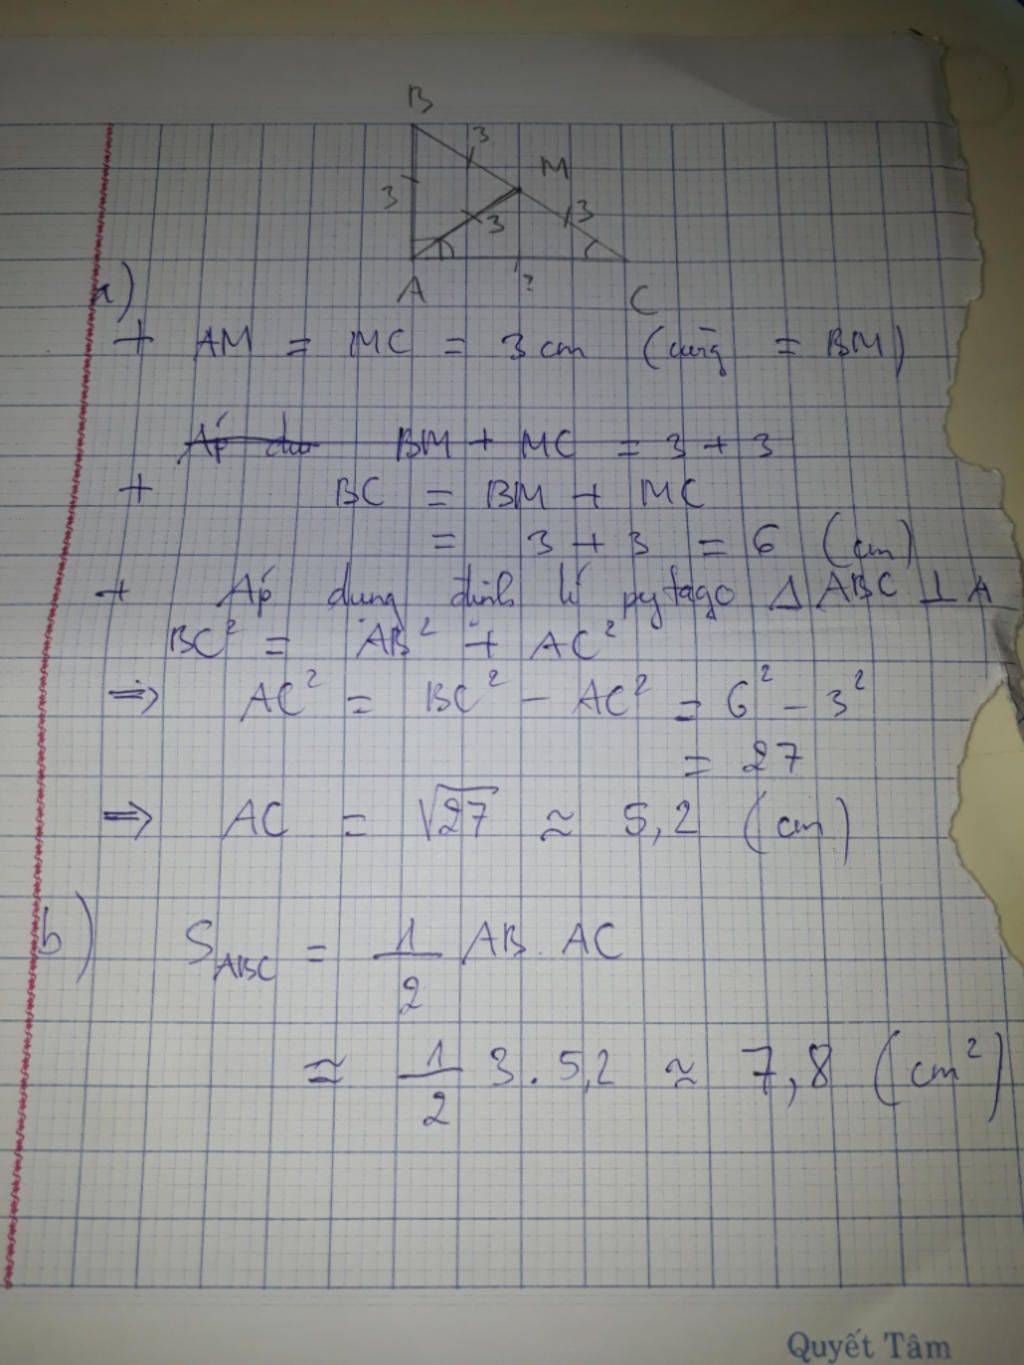 B
3
M
3
3
3
A
?
C
a)
+ AM = MC = 3 cm (cùng = BM)
Áp du BM + MC = 3 + 3
+ BC = BM + MC
= 3 + 3 = 6 (cm)
+ Áp dung định lí pytago Δ ABC ⊥ A
BC² = AB² + AC²
=> AC² = BC² - AC² = 6² - 3²
= 27
=> AC = √27 ≈ 5,2 (cm)
b) S_ABC = 1/2 AB. AC
≈ 1/2 3 . 5,2 ≈ 7,8 (cm²)
Quyết Tâm